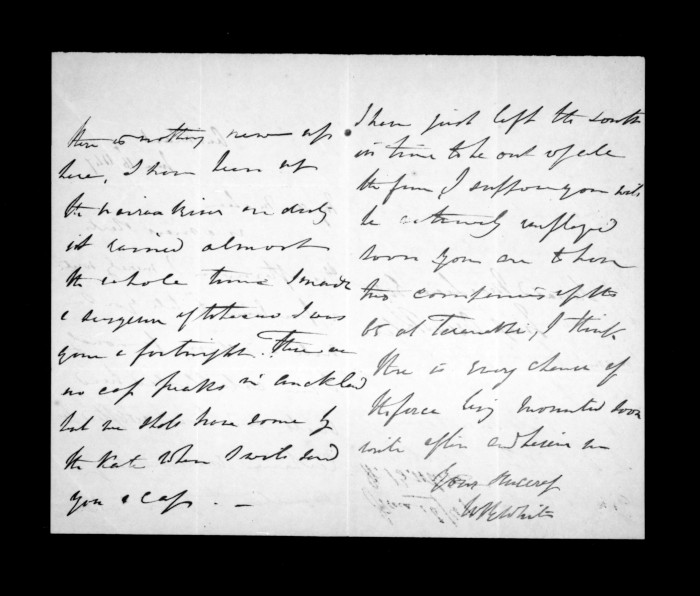 there is nothing new up
here, I have been up
the Wairoa River on duty
it rained almost
the whole time I made
a surgeon of I was
gone a fortnight. There are
no cap peaks in Auckland
but we shall have some by
the Kate when I will send
you a cap. —
I have just left the south
in time to be out of all
the fun, I suppose you will
be actively employed
soon you are to have
two companies of the
65 at Taranaki, I think
there is every chance of
the force being mounted soon
write often and believe me
Yours sincerely
W B White